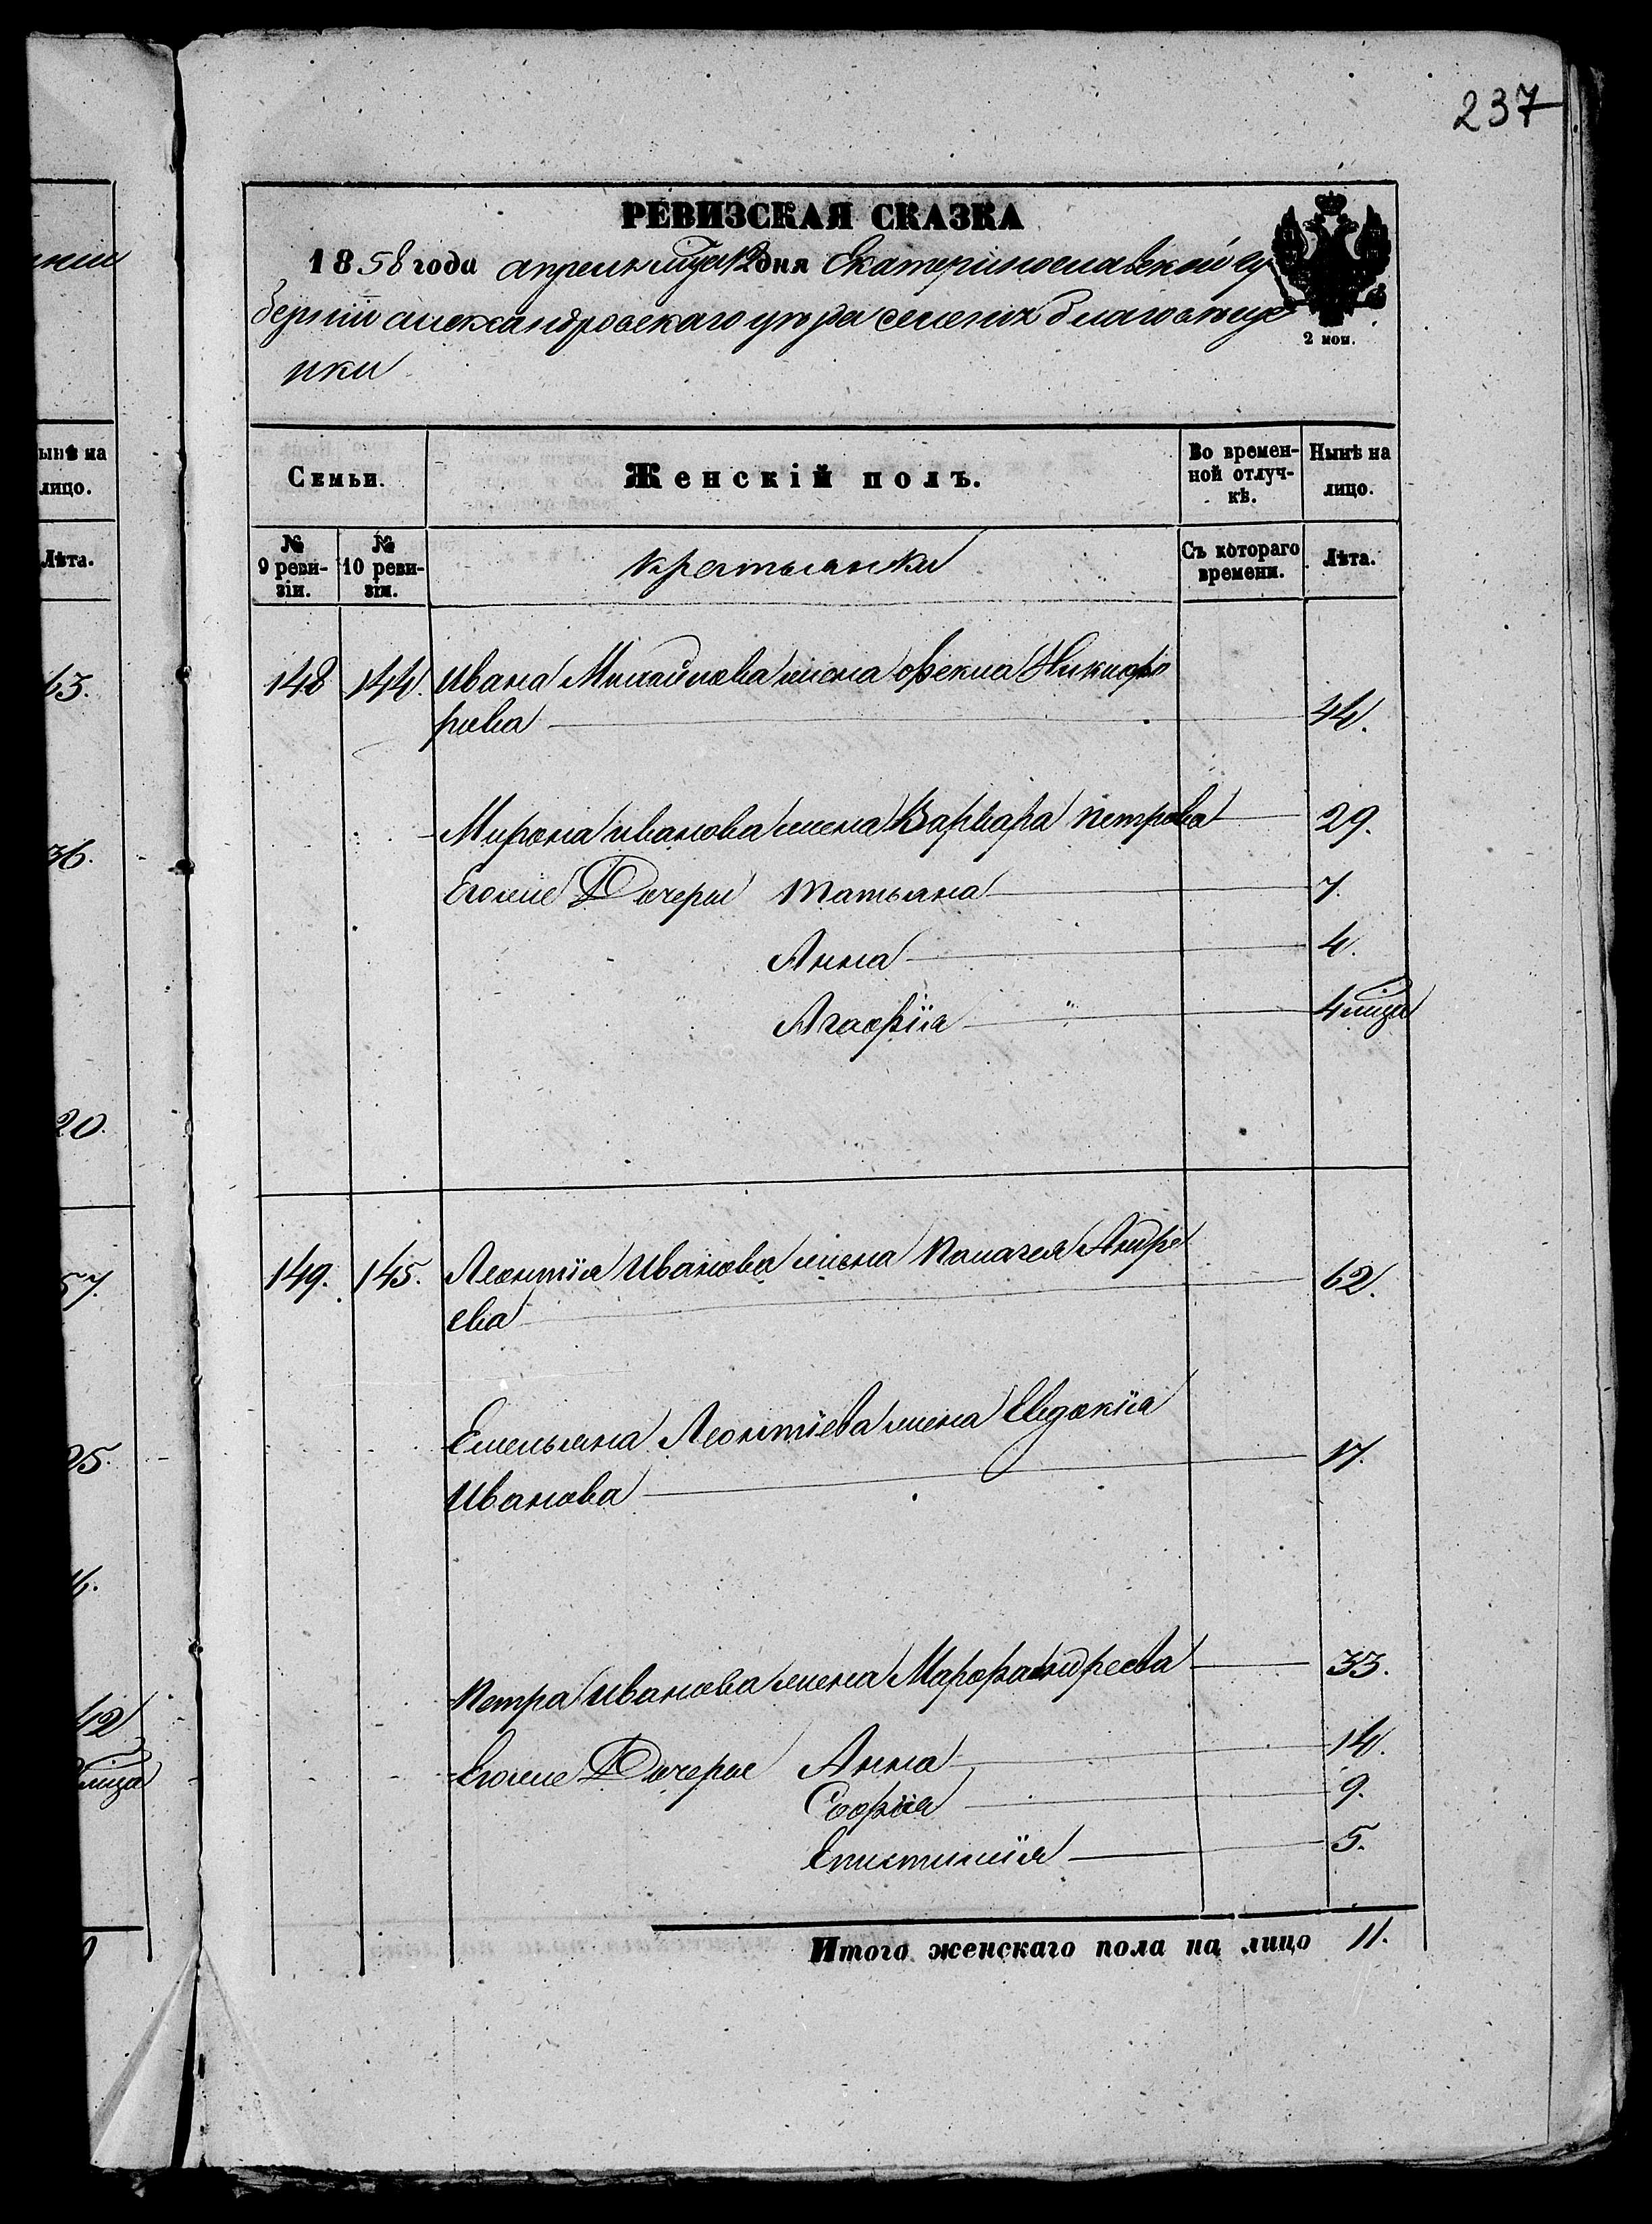 237
РЕВИЗСКАЯ СКАЗКА
1858 года апреля мца 12 дня Екатеринославской гу
берніи александровскаго уезда селенія благовеще
нки
2 коп.
Семьи.
Женскій полъ.
Во времен-
ной отлуч-
кѣ.
Нынѣ на
лицо.
№
9 реви-
зіи.
№
10 реви-
зіи.
крестьянки
Съ котораго
времени.
Лѣта.
148 144. Ивана Михайлова жена Фекла Никифо
рова 44.
Мирона иванова жена Варвара петрова 29.
Егоже Дочери татьяна 7.
Анна 4.
Агафія 4 мца
149. 145. Леонтія Иванова жена Палагея Андре
ева 62.
Емельяна Леонтіева жена Евдокія
Иванова 17.
петра иванова жена Марфа андреева 33.
Егоже Дочери Анна 14.
Софія 9.
Епистимія 5.
Итого женскаго пола на лицо 11.
ынѣ на
лицо.
Лѣта.
36.
20.
57.
25.
42
мца